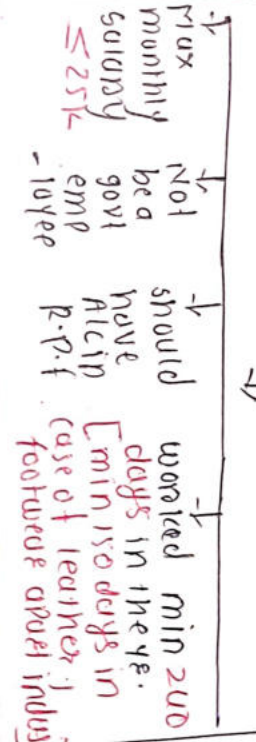 Max
monthly
salary
≤ 25k
Not
be a
govt
emp
-loyee
should
have
A/c in
R.P.f
worked min 240
days in the ye.
[min 150 days in
case of leather,
footwear aparel indus